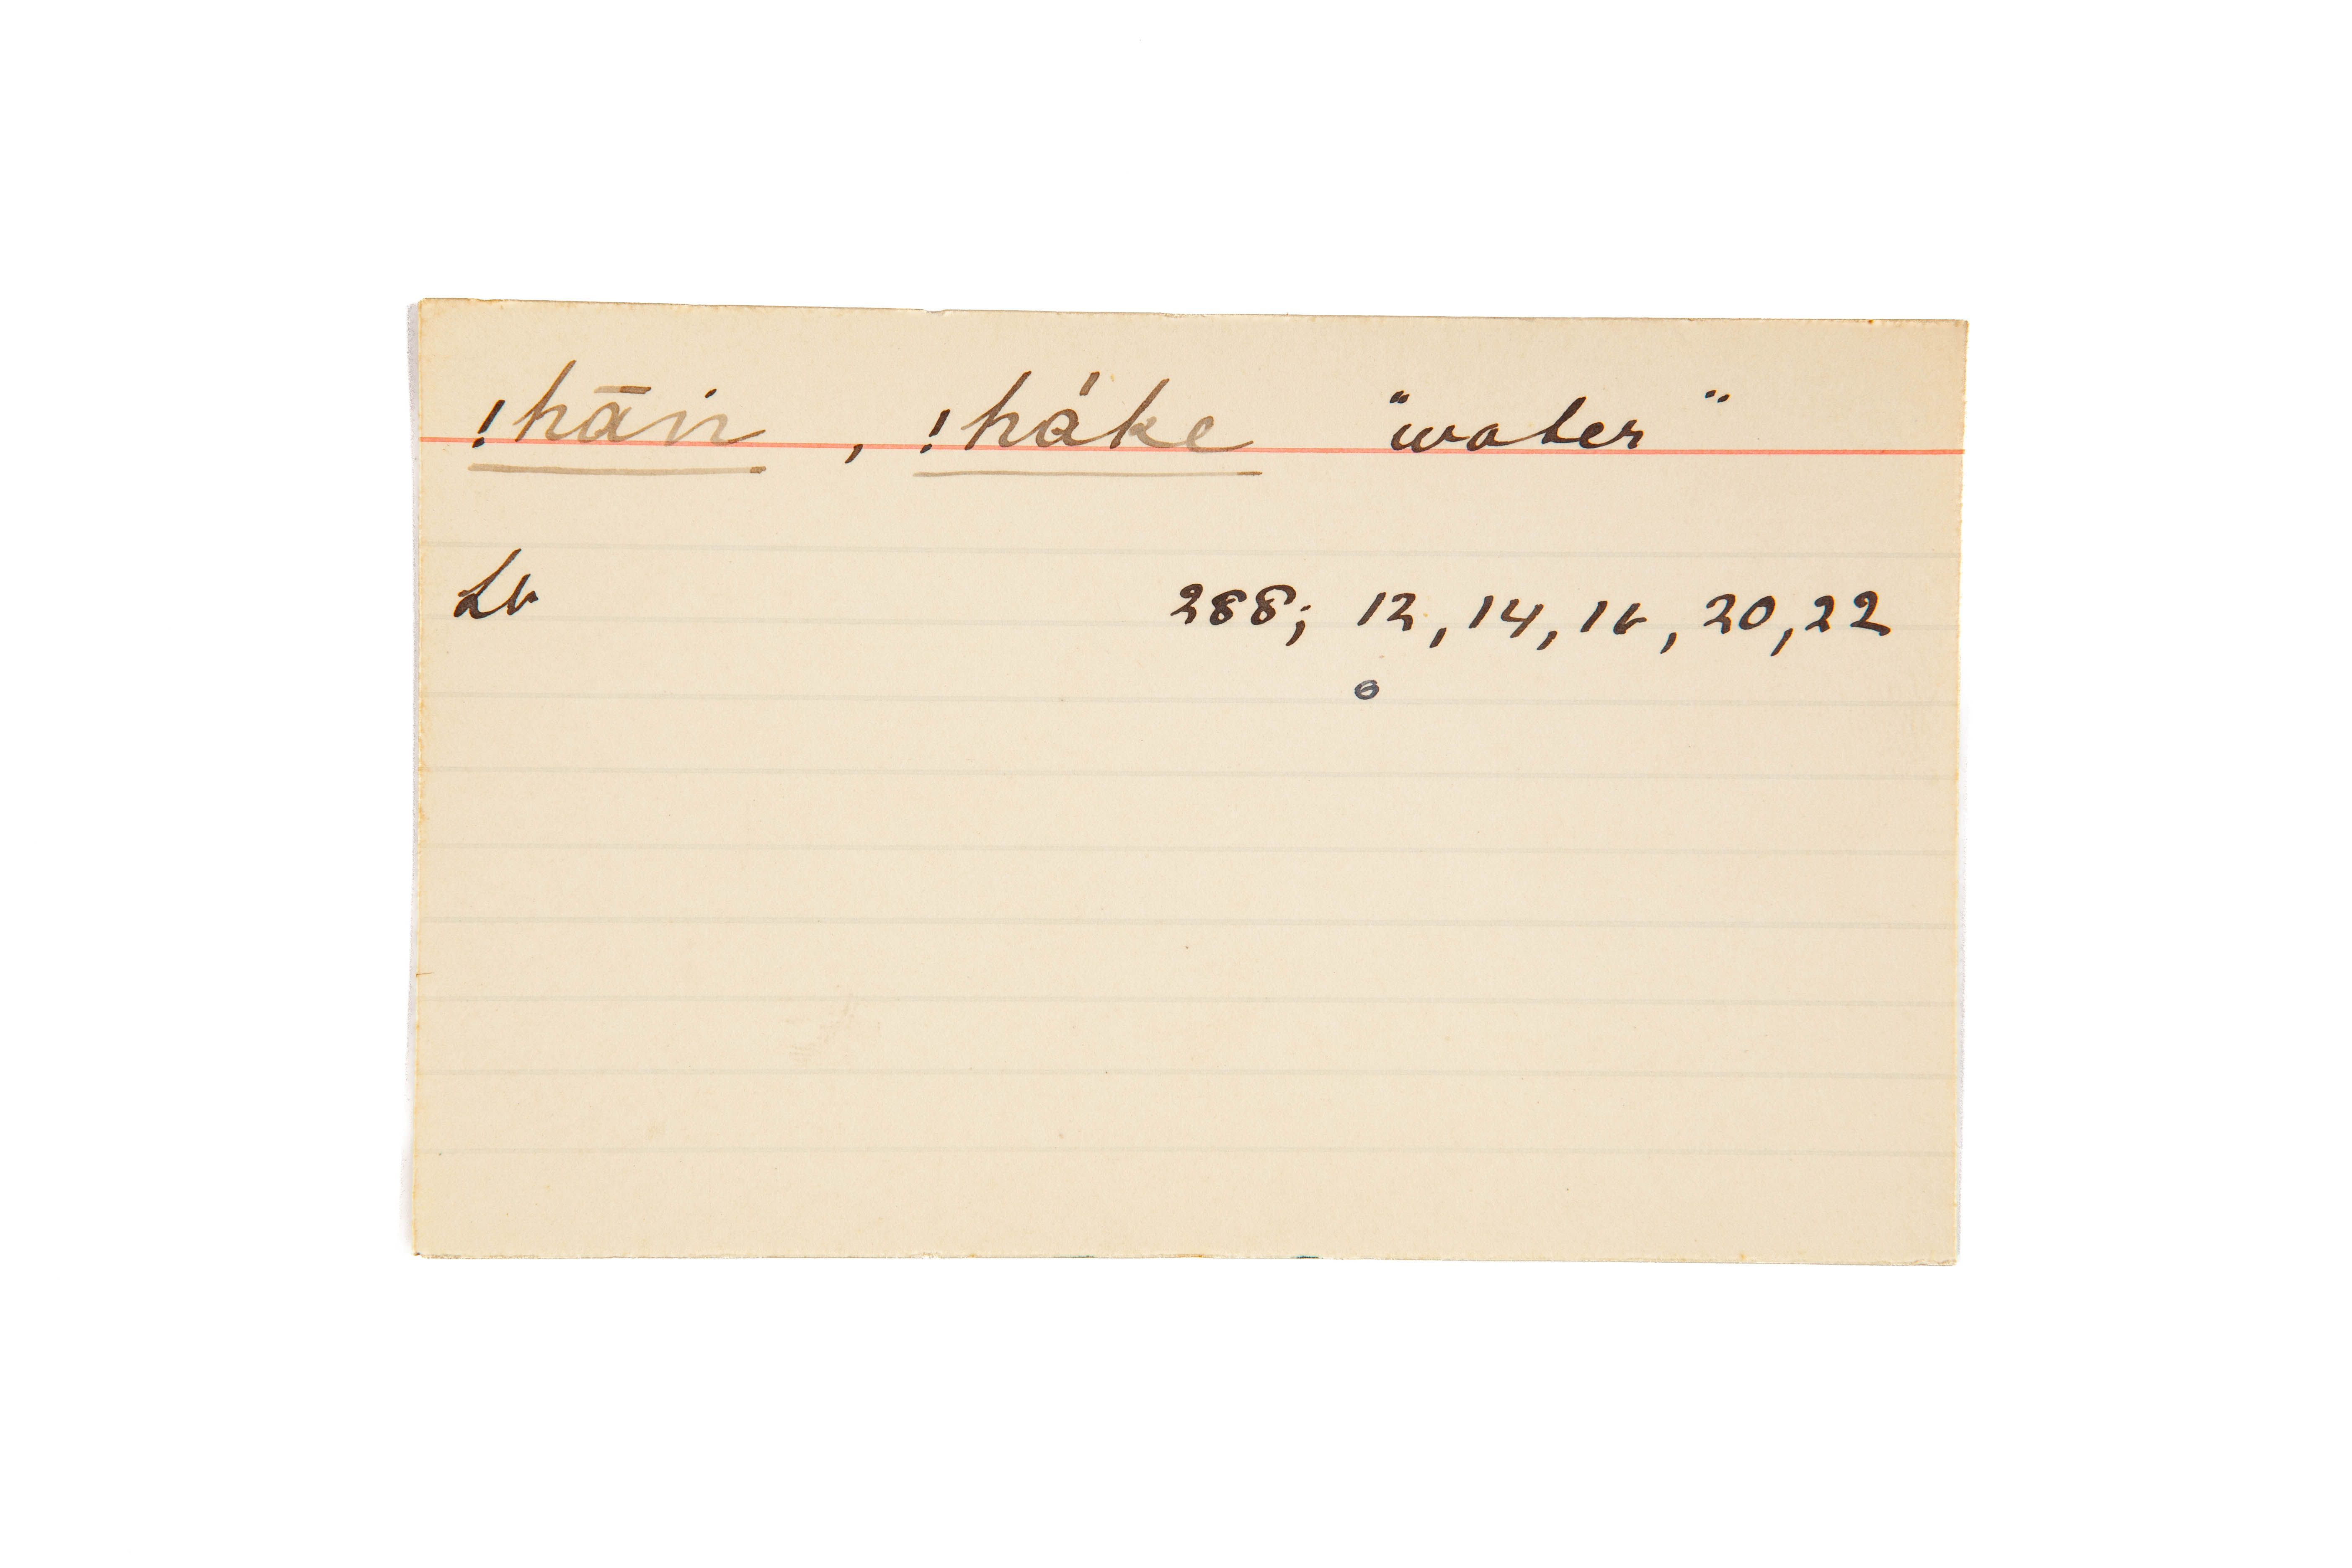 !hāin , !háke "water"
Lb 288; 12, 14, 16, 20, 22